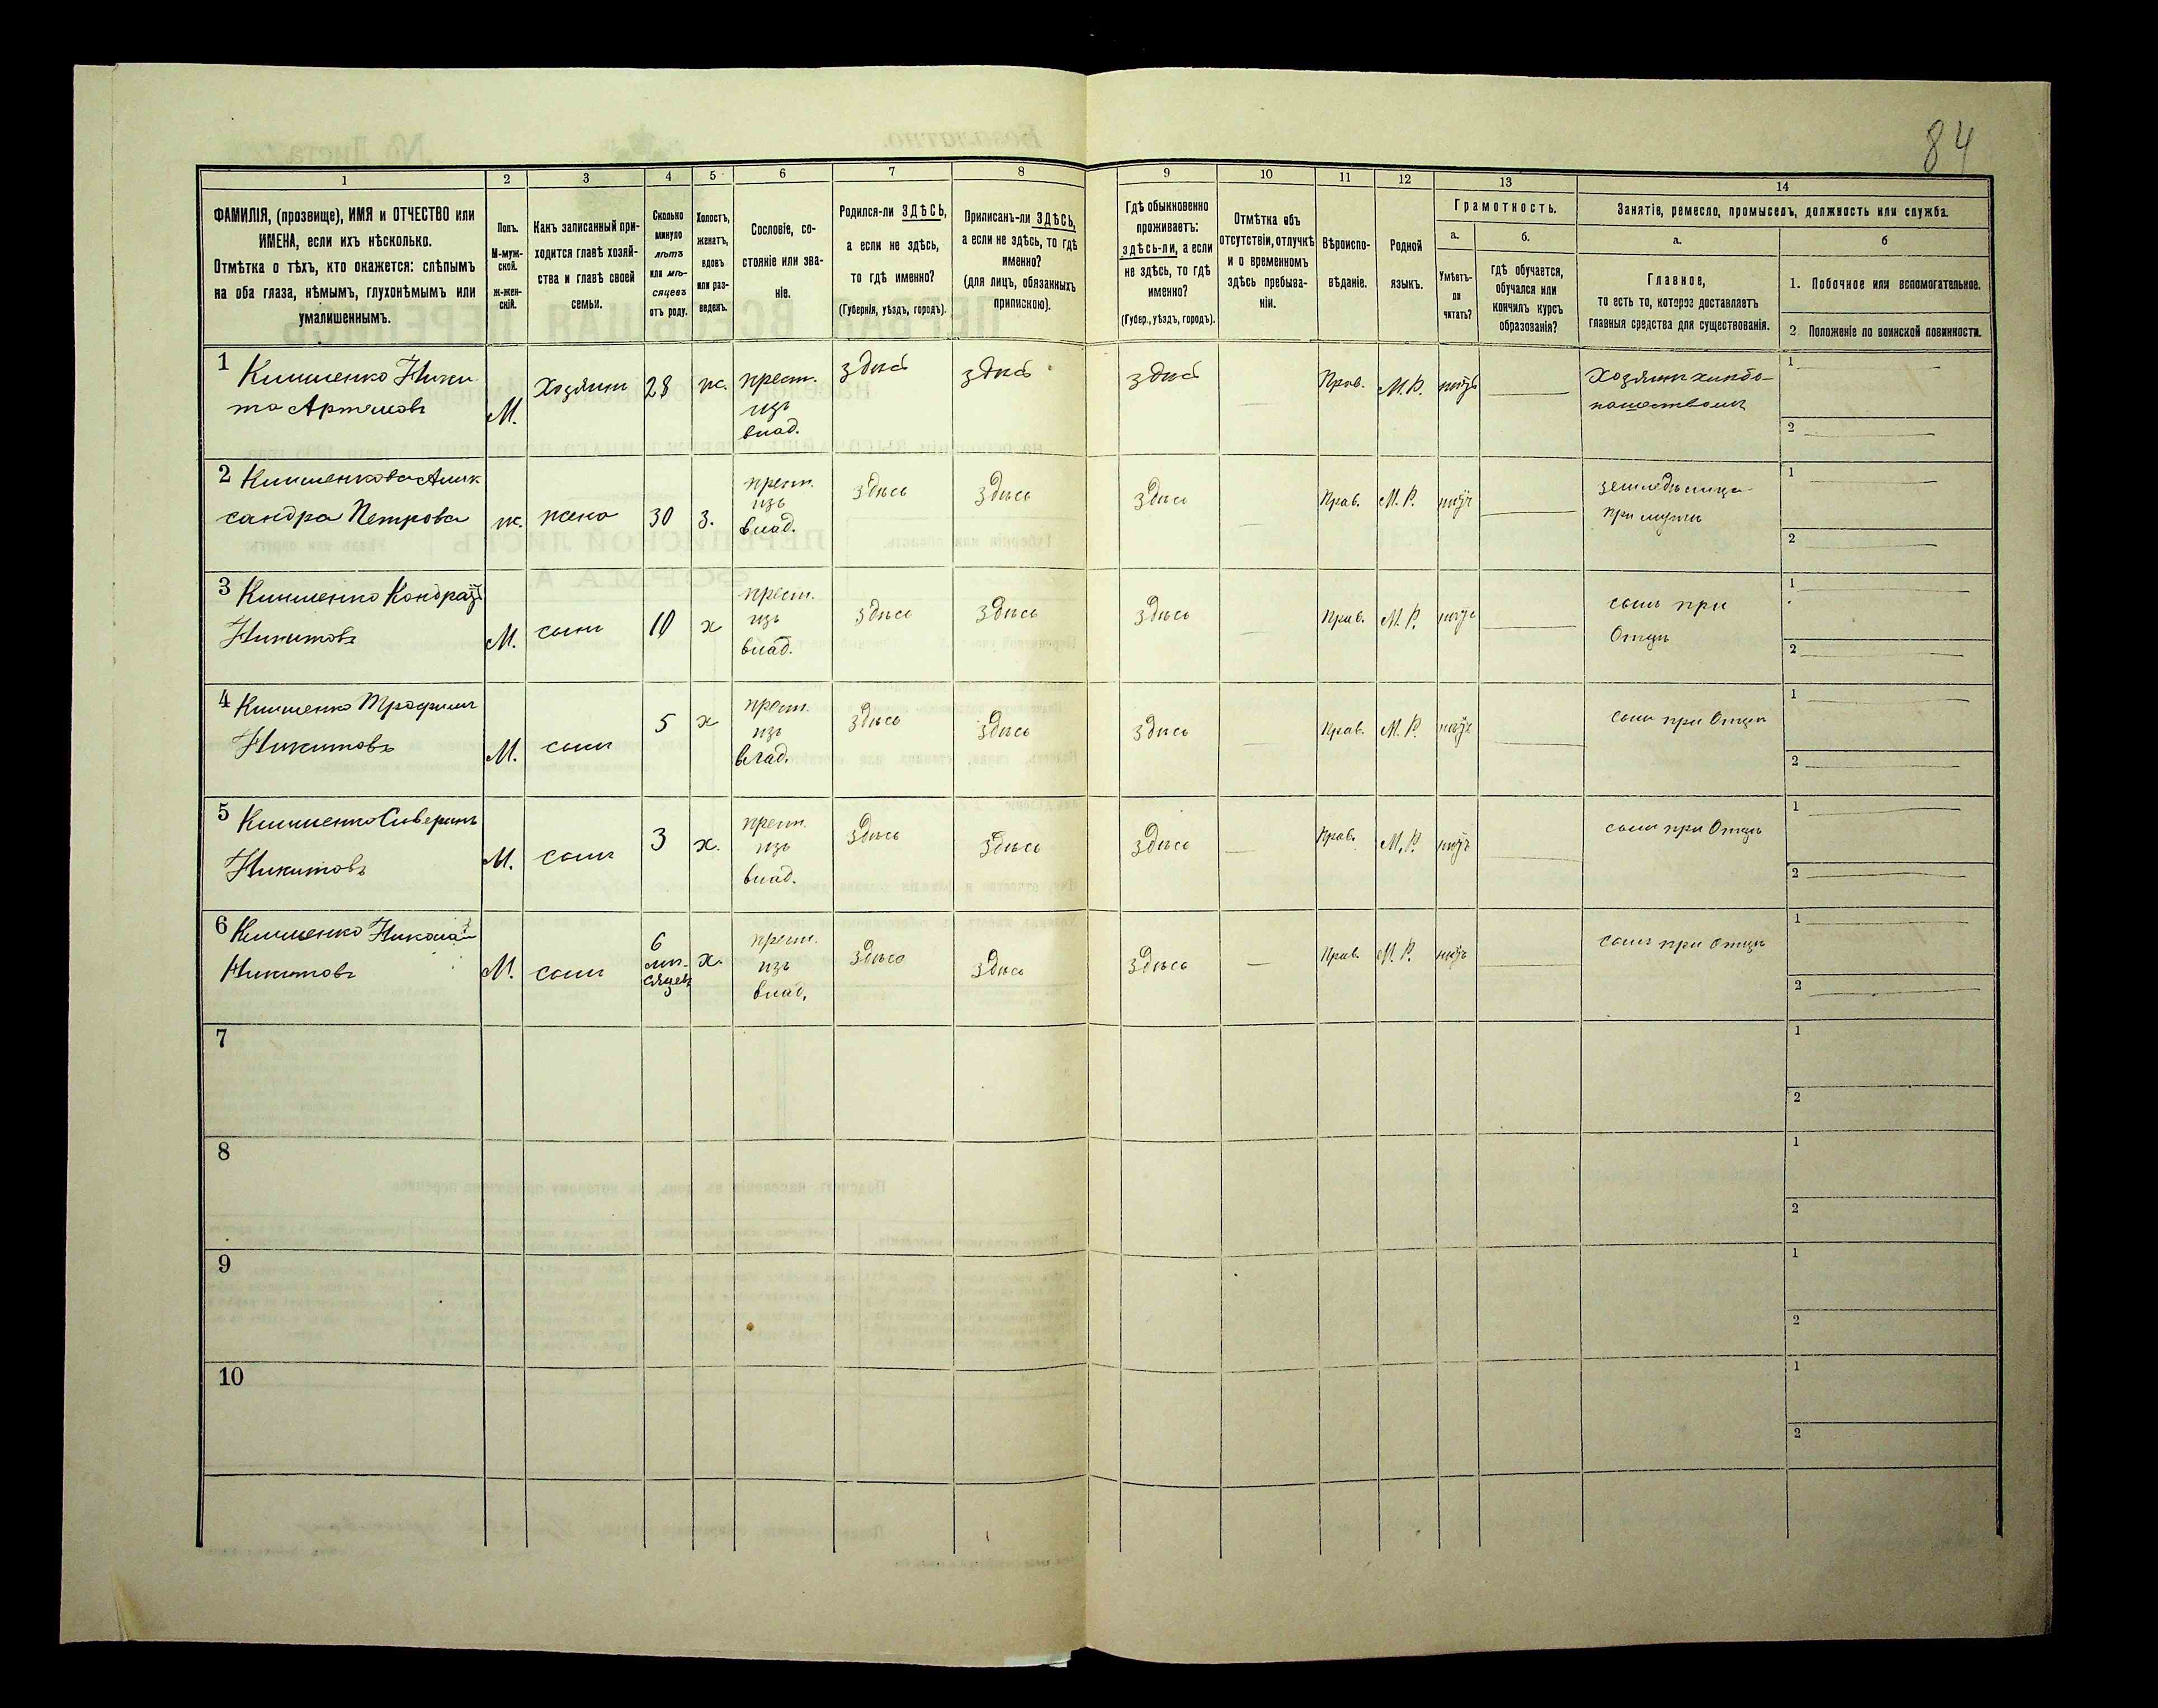 84
1 2 3 4 5 6 7 8 9 10 11 12 13 14
ФАМИЛІЯ, (прозвище), ИМЯ и ОТЧЕСТВО или
ИМЕНА, если ихъ нѣсколько.
Отмѣтка о тѣхъ, кто окажется: слѣпымъ
на оба глаза, нѣмымъ, глухонѣмымъ или
умалишеннымъ.
Полъ.
М-муж-
ской.
ж-жен-
скій.
Какъ записанный при-
ходится главѣ хозяй-
ства и главѣ своей
семьи.
Сколько
минуло
лѣтъ
или мѣ-
сяцевъ
отъ роду.
Холостъ,
женатъ,
вдовъ
или раз-
веденъ.
Сословіе, со-
стояніе или зва-
ніе.
Родился-ли ЗДѢСЬ,
а если не здѣсь,
то гдѣ именно?
(Губернія, уѣздъ, городъ).
Приписанъ-ли ЗДѢСЬ,
а если не здѣсь, то гдѣ
именно?
(для лицъ, обязанныхъ
припискою).
Гдѣ обыкновенно
проживаетъ:
здѣсь-ли, а если
не здѣсь, то гдѣ
именно?
(Губер., уѣздъ, городъ).
Отмѣтка объ
отсутствіи, отлучкѣ
и о временномъ
здѣсь пребыва-
ніи.
Вѣроиспо-
вѣданіе.
Родной
языкъ.
Грамотность.
а.
Умѣетъ-
ли
читать?
б.
гдѣ обучается,
обучался или
кончилъ курсъ
образованія?
Занятіе, ремесло, промыселъ, должность или служба.
а.
Главное,
то есть то, которое доставляетъ
главныя средства для существованія.
б
1. Побочное или вспомогательное.
2. Положеніе по воинской повинности.
1 Клименко Ники
та Артемовъ
М. Хозяинъ 28 ж. крест.
изъ
влад.
здѣсь здѣсь здѣсь Прав. М.Р. нѣтъ
Хозяинъ хлѣбо-
пашествомъ
1
2
2 Клименкова Алек
сандра Петрова
ж. жена 30 з. крест.
изъ
влад.
здѣсь здѣсь здѣсь Прав. М.Р. нѣтъ
земледѣлица
при мужѣ
1
2
3 Клименко Кондратъ
Никитовъ
М. сынъ 10 х крест.
изъ
влад.
здѣсь здѣсь здѣсь Прав. М.Р. нѣтъ
сынъ при
Отцѣ
1
2
4 Клименко Трофимъ
Никитовъ
М. сынъ 5 х крест.
изъ
влад.
здѣсь здѣсь здѣсь Прав. М.Р. нѣтъ
сынъ при Отцѣ
1
2
5 Клименко Северинъ
Никитовъ
М. сынъ 3 х. крест.
изъ
влад.
здѣсь здѣсь здѣсь Прав. М.Р. нѣтъ
сынъ при Отцѣ
1
2
6 Клименко Николай
Никитовъ
М. сынъ 6
мѣ-
сяцевъ
х. крест.
изъ
влад.
здѣсь здѣсь здѣсь Прав. М.Р. нѣтъ
сынъ при Отцѣ
1
2
7
1
2
8
1
2
9
1
2
10
1
2